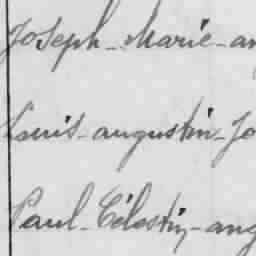 Joseph - Marie - an
Louis - augustin - Jo
Paul - Célestin - ang